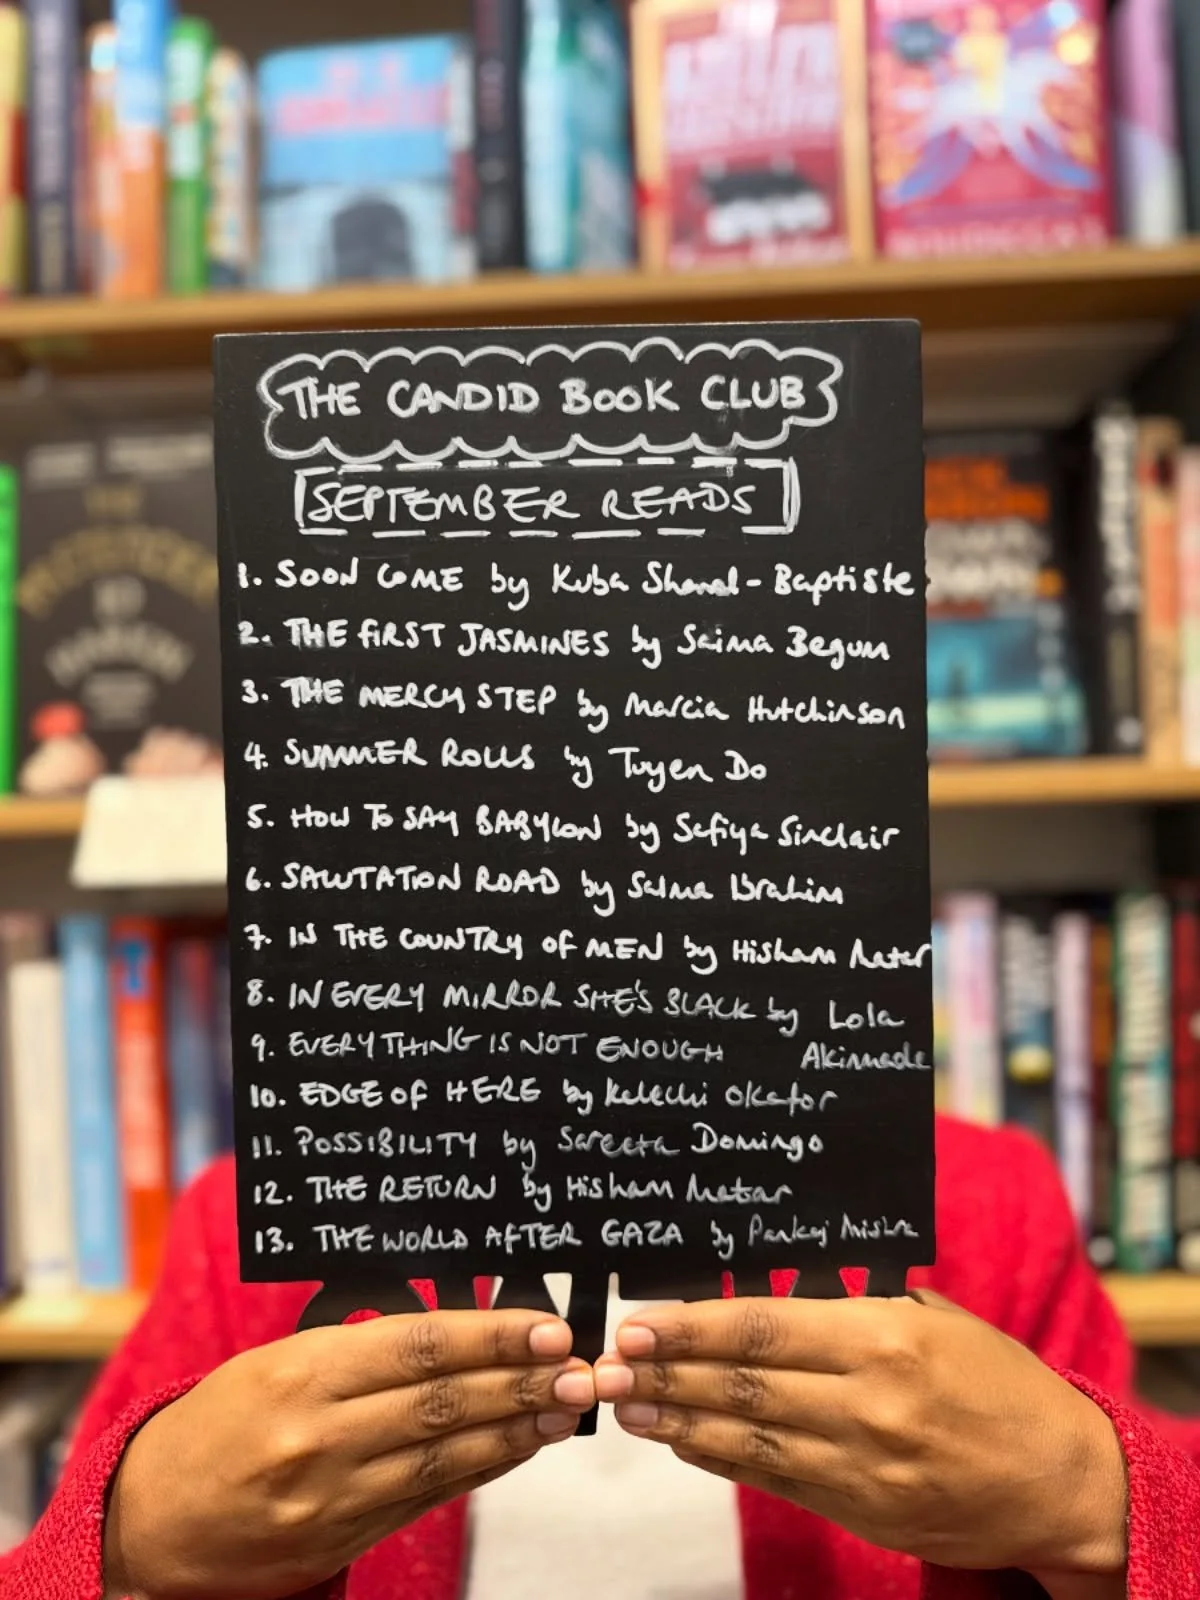 THE CANDID BOOK CLUB
SEPTEMBER READS
1. SOON COME by Kuba Shand-Baptiste
2. THE FIRST JASMINES by Saima Begum
3. THE MERCY STEP by Marcia Hutchinson
4. SUMMER ROLLS by Tuyen Do
5. HOW TO SAY BABYLON by Safiya Sinclair
6. SALUTATION ROAD by Salma Ibrahim
7. IN THE COUNTRY OF MEN by Hisham Matar
8. IN EVERY MIRROR SHE'S BLACK by Lola
9. EVERYTHING IS NOT ENOUGH Akinmade
10. EDGE OF HERE by Kelechi Okafor
11. POSSIBILITY by Sareeta Domingo
12. THE RETURN by Hisham Matar
13. THE WORLD AFTER GAZA by Pankaj Mishra